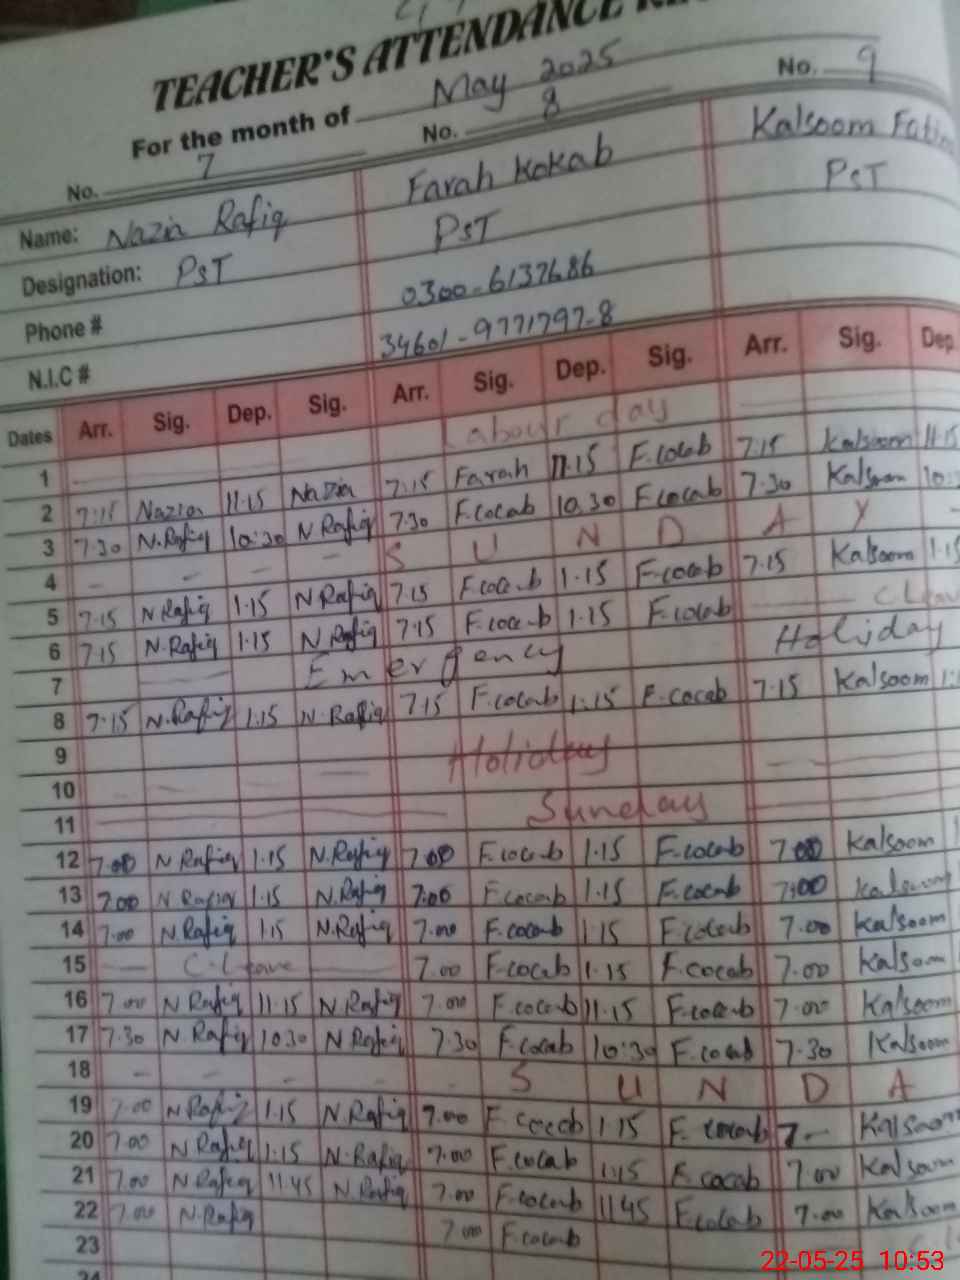 TEACHER'S ATTENDANCE
For the month of May 2025
No. 7 No. 8 No. 9
Name: Nazia Rafiq Farah Kokab Kalsoom
Designation: PST PST PST
Phone # 0300-6137686
N.I.C # 34601-9771797-8
Dates Arr. Sig. Dep. Sig. Arr. Sig. Dep. Sig. Arr. Sig. Dep.
1 Labour day
2 7:15 Nazia 11.15 Nazia 7.15 Farah 11.15 F.cocab 7.15 Kalsoom 11.15
3 7.30 N.Rafiq 10:30 N Rafiq 7.30 F.cocab 10.30 F.cocab 7.30 Kalsoom
4 S U N D A Y
5 7.15 N Rafiq 1.15 N Rafiq 7.15 F.cocab 1.15 F.cocab 7.15 Kalsoom
6 7.15 N.Rafiq 1.15 N Rafiq 7.15 F.cocab 1.15 F.cocab
7 Emergency Holiday
8 7.15 N.Rafiq 1.15 N.Rafiq 7.15 F.cocab 1.15 F.cocab 7.15 Kalsoom
9
10 Holiday
11 Sunday
12 7.00 N Rafiq 1.15 N.Rafiq 7.00 F.cocab 1.15 F.cocab 7.00 Kalsoom
13 7.00 N Rafiq 1.15 N.Rafiq 7.00 F.cocab 1.15 F.cocab 7.00 Kalsoom
14 7.00 N.Rafiq 1.15 N.Rafiq 7.00 F.cocab 1.15 F.cocab 7.00 Kalsoom
15 C.Leave 7.00 F.cocab 1.15 F.cocab 7.00 Kalsoom
16 7.00 N Rafiq 11.15 N Rafiq 7.00 F.cocab 11.15 F.cocab 7.00 Kalsoom
17 7.30 N.Rafiq 10.30 N Rafiq 7.30 F.cocab 10:30 F.cocab 7.30 Kalsoom
18 S U N D A
19 7.00 N Rafiq 1.15 N.Rafiq 7.00 F.cocab 1.15 F.cocab 7.- Kalsoom
20 7.00 N Rafiq 1.15 N.Rafiq 7.00 F.cocab 1.15 F.cocab 7.00 Kalsoom
21 7.00 N.Rafiq 11.45 N.Rafiq 7.00 F.cocab 1145 F.cocab 7.00 Kalsoom
22 7.00 N.Rafiq 7.00 F.cocab
23
24
22-05-25 10:53